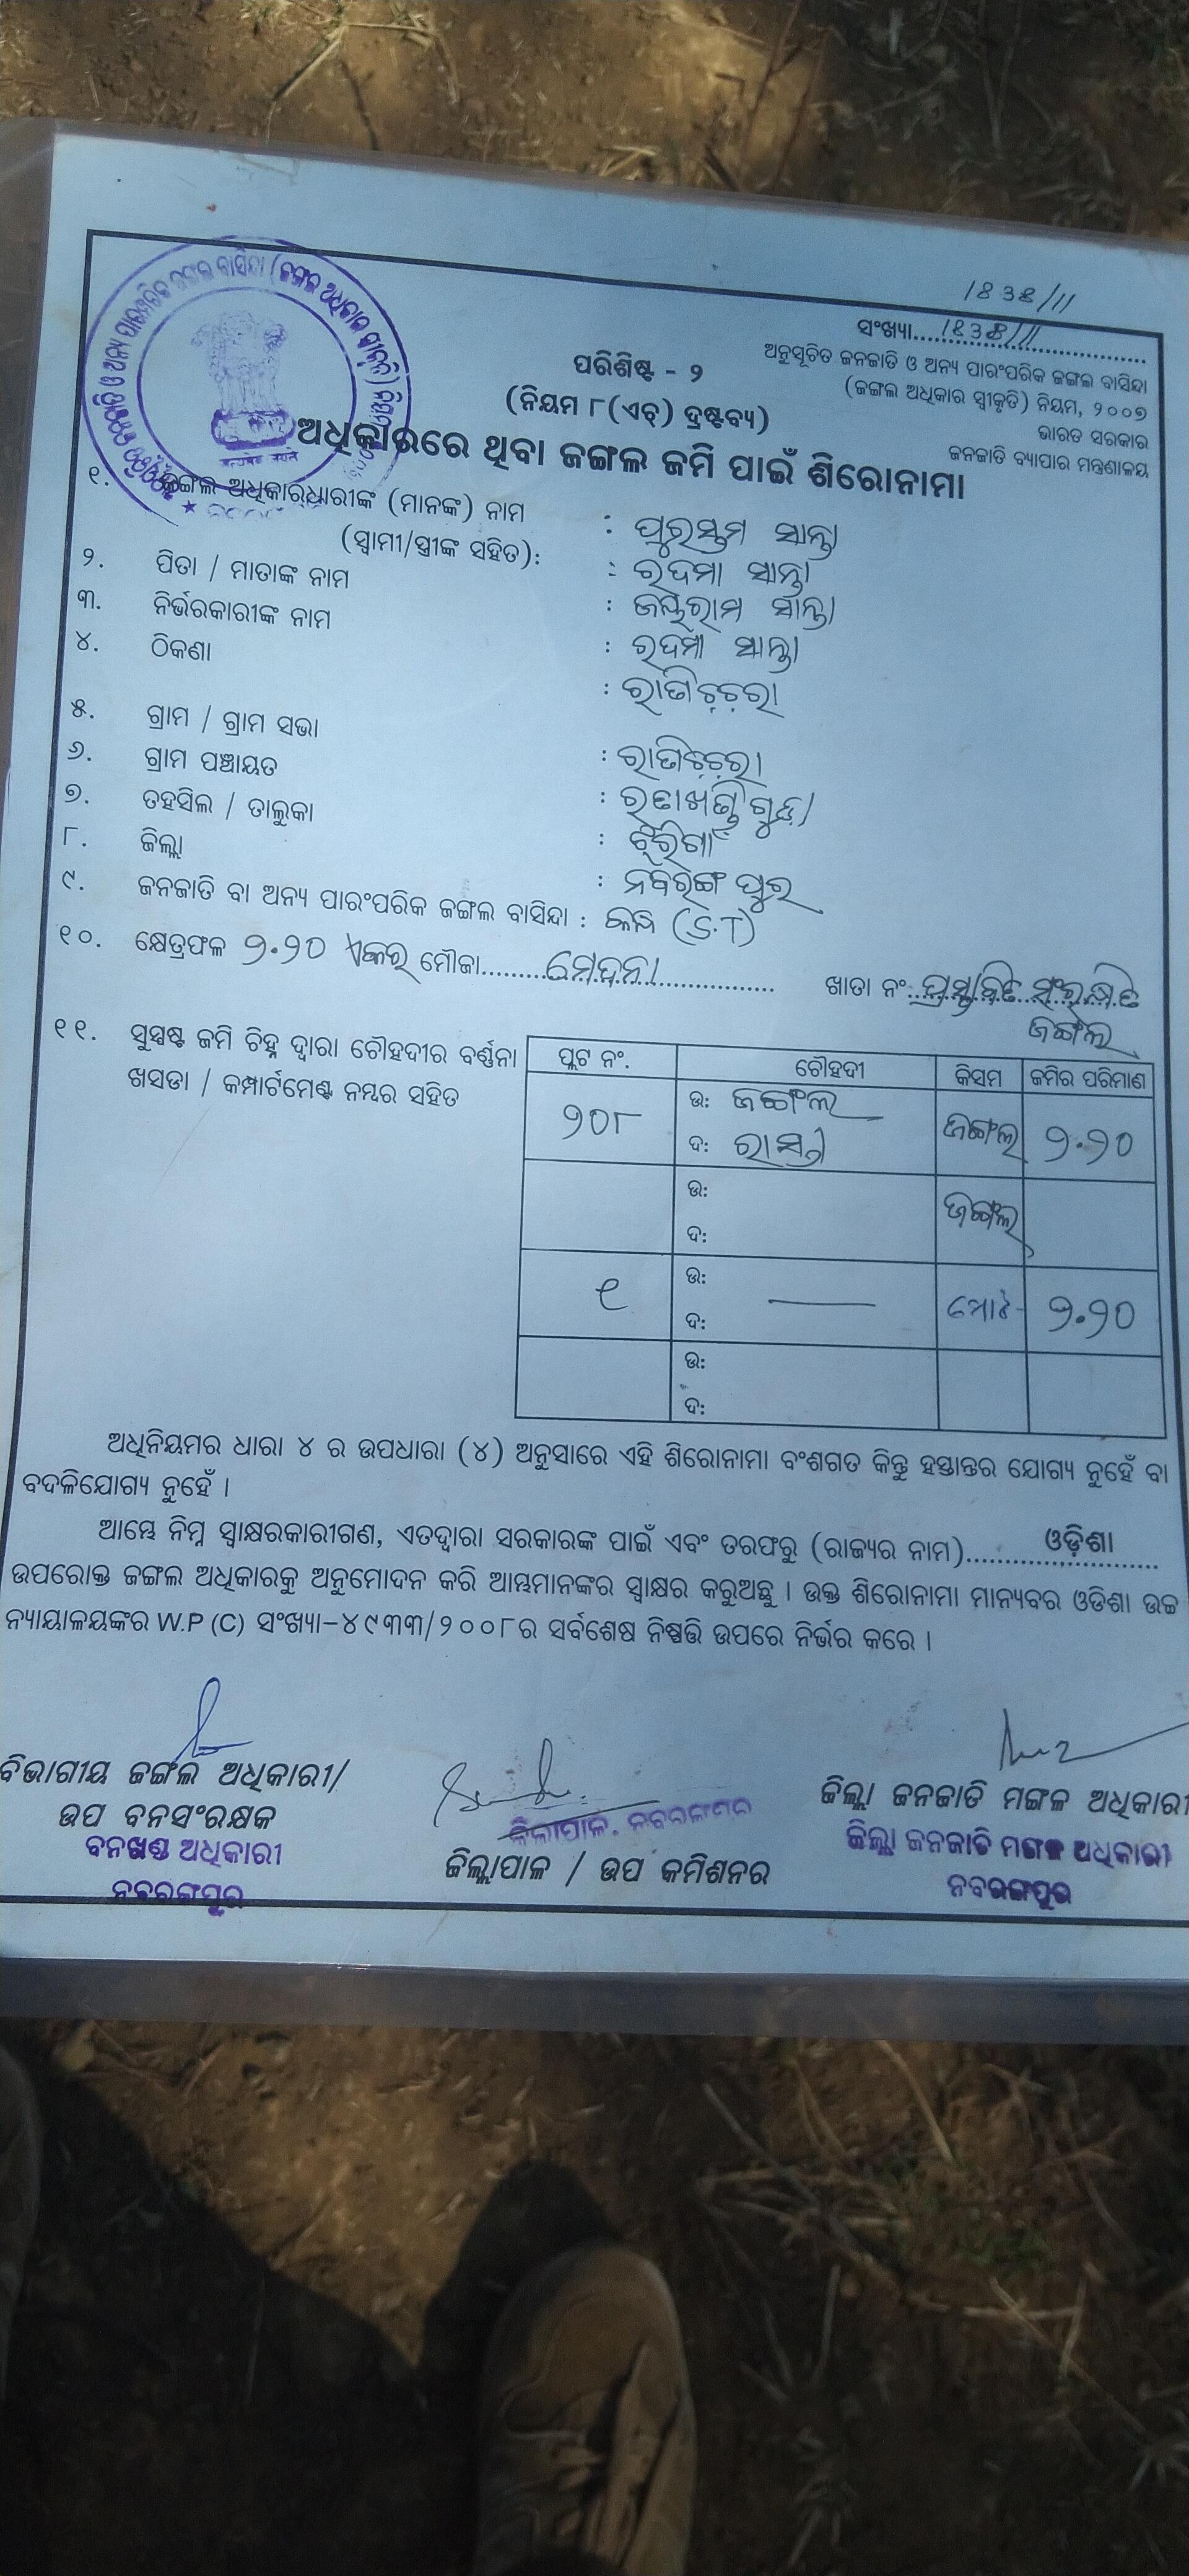 ୧୫୩୫/11
ସଂଖ୍ୟା......................
ଅନୁସୂଚିତ ଜନଜାତି ଓ ଅନ୍ୟ ପାରଂପରିକ ଜଙ୍ଗଲ ବାସିନ୍ଦା
(ଜଙ୍ଗଲ ଅଧିକାର ସ୍ୱୀକୃତି) ନିୟମ, ୨୦୦୭
ଭାରତ ସରକାର
ଜନଜାତି ବ୍ୟାପାର ମନ୍ତ୍ରଣାଳୟ
ପରିଶିଷ୍ଟ - ୨
(ନିୟମ ୮(ଏଚ୍) ଦ୍ରଷ୍ଟବ୍ୟ)
ଅଧିକାରରେ ଥିବା ଜଙ୍ଗଲ ଜମି ପାଇଁ ଶିରୋନାମା
୧. ଜଙ୍ଗଲ ଅଧିକାରଧାରୀଙ୍କ (ମାନଙ୍କ) ନାମ : ପୁରସ୍ତମ ସାନ୍ତା
(ସ୍ୱାମୀ/ସ୍ତ୍ରୀଙ୍କ ସହିତ): : ରଦମା ସାନ୍ତା
୨. ପିତା / ମାତାଙ୍କ ନାମ : ଜୟରାମ ସାନ୍ତା
୩. ନିର୍ଭରକାରୀଙ୍କ ନାମ : ରଦମା ସାନ୍ତା
୪. ଠିକଣା :
୫. ଗ୍ରାମ / ଗ୍ରାମ ସଭା :
୬. ଗ୍ରାମ ପଞ୍ଚାୟତ :
୭. ତହସିଲ / ତାଲୁକା :
୮. ଜିଲ୍ଲା : ନବରଙ୍ଗପୁର
୯. ଜନଜାତି ବା ଅନ୍ୟ ପାରଂପରିକ ଜଙ୍ଗଲ ବାସିନ୍ଦା : କନ୍ଧ (S.T)
୧୦. କ୍ଷେତ୍ରଫଳ ୨.୨୦ ଏକର ମୌଜା...... ମେଦନା ...... ଖାତା ନଂ. ପ୍ରସ୍ତାବିତ ସଂରକ୍ଷିତ
ଜଙ୍ଗଲ
୧୧. ସୁସ୍ପଷ୍ଟ ଜମି ଚିହ୍ନ ଦ୍ୱାରା ଚୌହଦୀର ବର୍ଣ୍ଣନା
ଖସଡା / କମ୍ପାର୍ଟମେଣ୍ଟ ନମ୍ବର ସହିତ
ପ୍ଲଟ ନଂ. ଚୌହଦୀ କିସମ ଜମିର ପରିମାଣ
୨୦୮ ଉ: ଜଙ୍ଗଲ ଜଙ୍ଗଲ ୨.୨୦
ଦ: ରାସ୍ତା
ଉ: ଜଙ୍ଗଲ
ଦ:
୧ ଉ: — ମୋଟ- ୨.୨୦
ଦ:
ଉ:
ଦ:
ଅଧିନିୟମର ଧାରା ୪ ର ଉପଧାରା (୪) ଅନୁସାରେ ଏହି ଶିରୋନାମା ବଂଶଗତ କିନ୍ତୁ ହସ୍ତାନ୍ତର ଯୋଗ୍ୟ ନୁହେଁ ବା
ବଦଳିଯୋଗ୍ୟ ନୁହେଁ ।
ଆମ୍ଭେ ନିମ୍ନ ସ୍ୱାକ୍ଷରକାରୀଗଣ, ଏତଦ୍ୱାରା ସରକାରଙ୍କ ପାଇଁ ଏବଂ ତରଫରୁ (ରାଜ୍ୟର ନାମ)...... ଓଡ଼ିଶା ......
ଉପରୋକ୍ତ ଜଙ୍ଗଲ ଅଧିକାରକୁ ଅନୁମୋଦନ କରି ଆମ୍ଭମାନଙ୍କର ସ୍ୱାକ୍ଷର କରୁଅଛୁ । ଉକ୍ତ ଶିରୋନାମା ମାନ୍ୟବର ଓଡିଶା ଉଚ୍ଚ
ନ୍ୟାୟାଳୟଙ୍କର W.P (C) ସଂଖ୍ୟା-୪୯୩୩/୨୦୦୮ର ସର୍ବଶେଷ ନିଷ୍ପତ୍ତି ଉପରେ ନିର୍ଭର କରେ ।
ବିଭାଗୀୟ ଜଙ୍ଗଲ ଅଧିକାରୀ/
ଉପ ବନସଂରକ୍ଷକ
ବନଖଣ୍ଡ ଅଧିକାରୀ
ନବରଙ୍ଗପୁର
ଜିଲ୍ଲାପାଳ, ନବରଙ୍ଗପୁର
ଜିଲ୍ଲାପାଳ / ଉପ କମିଶନର
ଜିଲ୍ଲା ଜନଜାତି ମଙ୍ଗଳ ଅଧିକାରୀ
ଜିଲ୍ଲା ଜନଜାତି ମଙ୍ଗଳ ଅଧିକାରୀ
ନବରଙ୍ଗପୁର